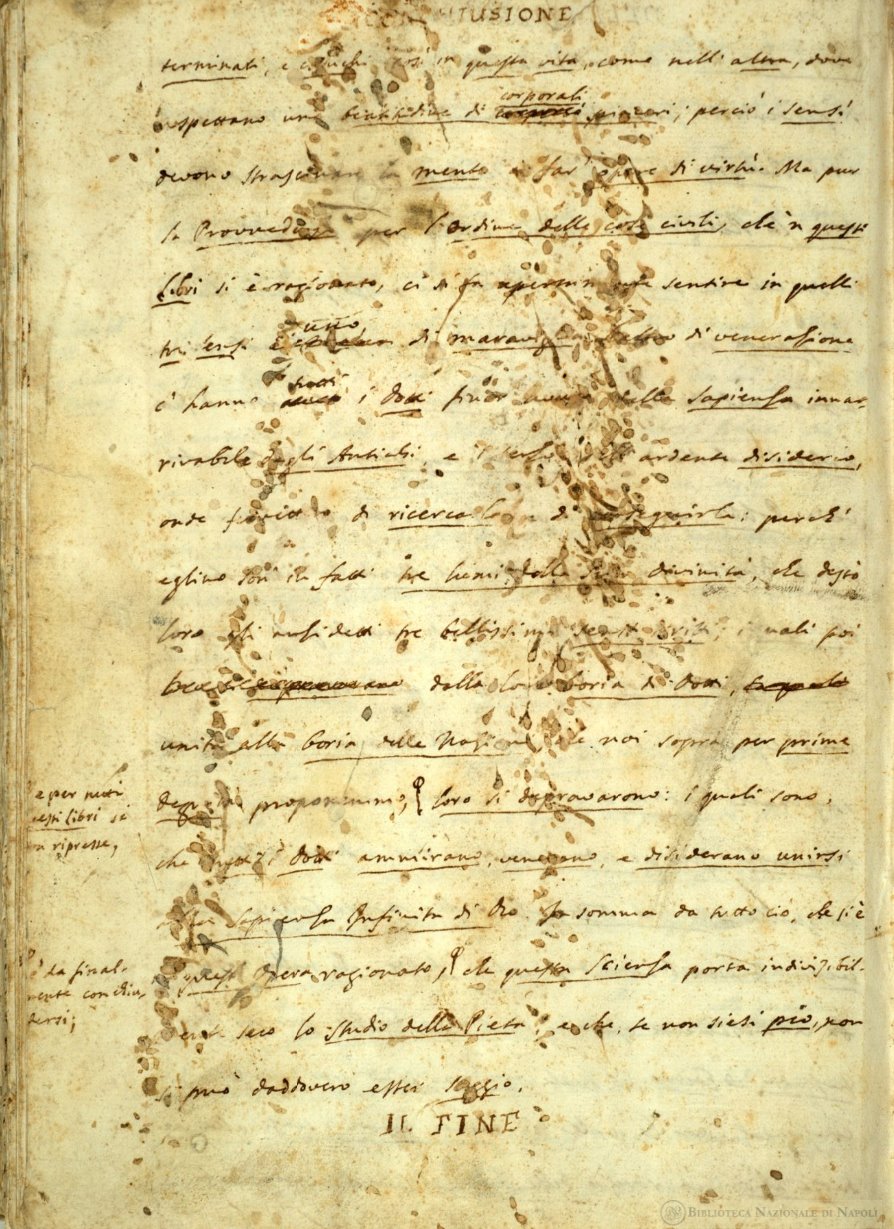 CONCHIUSIONE
terminati, e caduchi così in questa vita, come nell'altra, dove
aspettano una beatitudine di corporali piaceri; perciò i sensi
devono strascinare la mente a far' opere di virtù. Ma pur
la Provvedenza per l'ordine delle cose civili, che 'n questi
Libri si è ragionato, ci si fa apertamente sentire in quelli
tre sensi, uno, di maraviglia, l'altro di venerazione
c'hanno tutti i Dotti finor avuto della Sapienza innar-
rivabile degli Antichi, e 'l terzo dell'ardente disiderio,
onde fervettero di ricercarla, e di conseguirla: perch'
eglino son in fatti tre lumi della sua divinità, che destò
loro gli anzidetti tre bellissimi sensi diritti; i quali poi
dalla loro boria di Dotti,
unita alla boria delle Nazioni, che noi sopra per prime
degnità proponemmo, loro si depravarono: i quali sono,
e per tutti
questi Libri si
son ripresse,
che tutti i Dotti ammirano, venerano, e disiderano unirsi
alla Sapienza Infinita di Dio. In somma da tutto ciò, che si è
'n quest'Opera ragionato, che questa Scienza porta indivisibil-
è da final-
mente conchiu-
dersi;
mente seco lo Studio della Pietà; e che, se non siesi pio, non
si può daddovero esser saggio.
IL FINE
BIBLIOTECA NAZIONALE DI NAPOLI